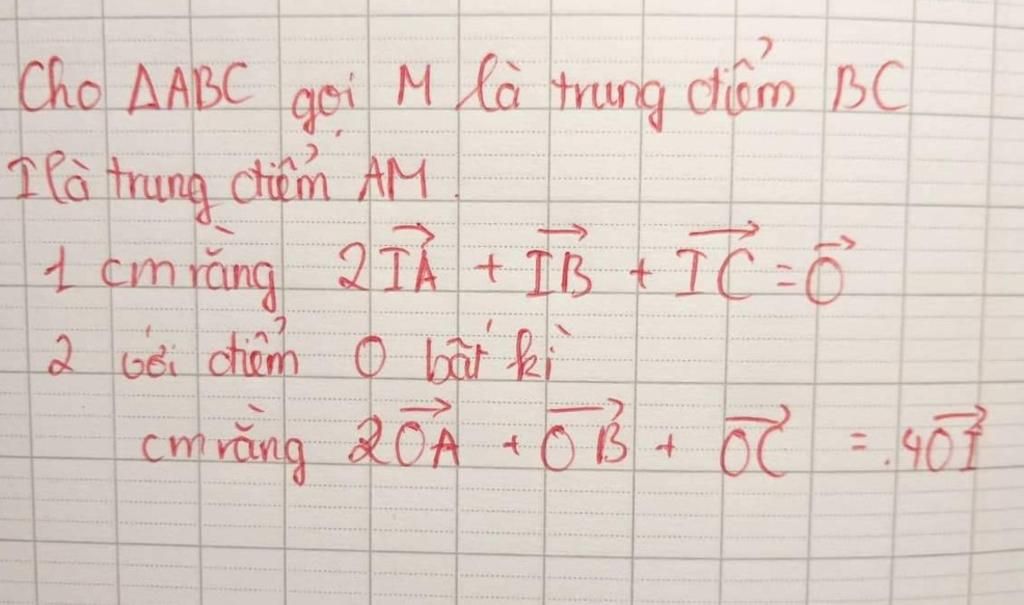 Cho ΔABC gọi M là trung điểm BC
I là trung điểm AM.
1 cm rằng 2$\overrightarrow{IA}$ + $\overrightarrow{IB}$ + $\overrightarrow{IC}$ = $\overrightarrow{0}$
2 với điểm O bất kì
cm rằng 2$\overrightarrow{OA}$ + $\overrightarrow{OB}$ + $\overrightarrow{OC}$ = .4$\overrightarrow{OI}$